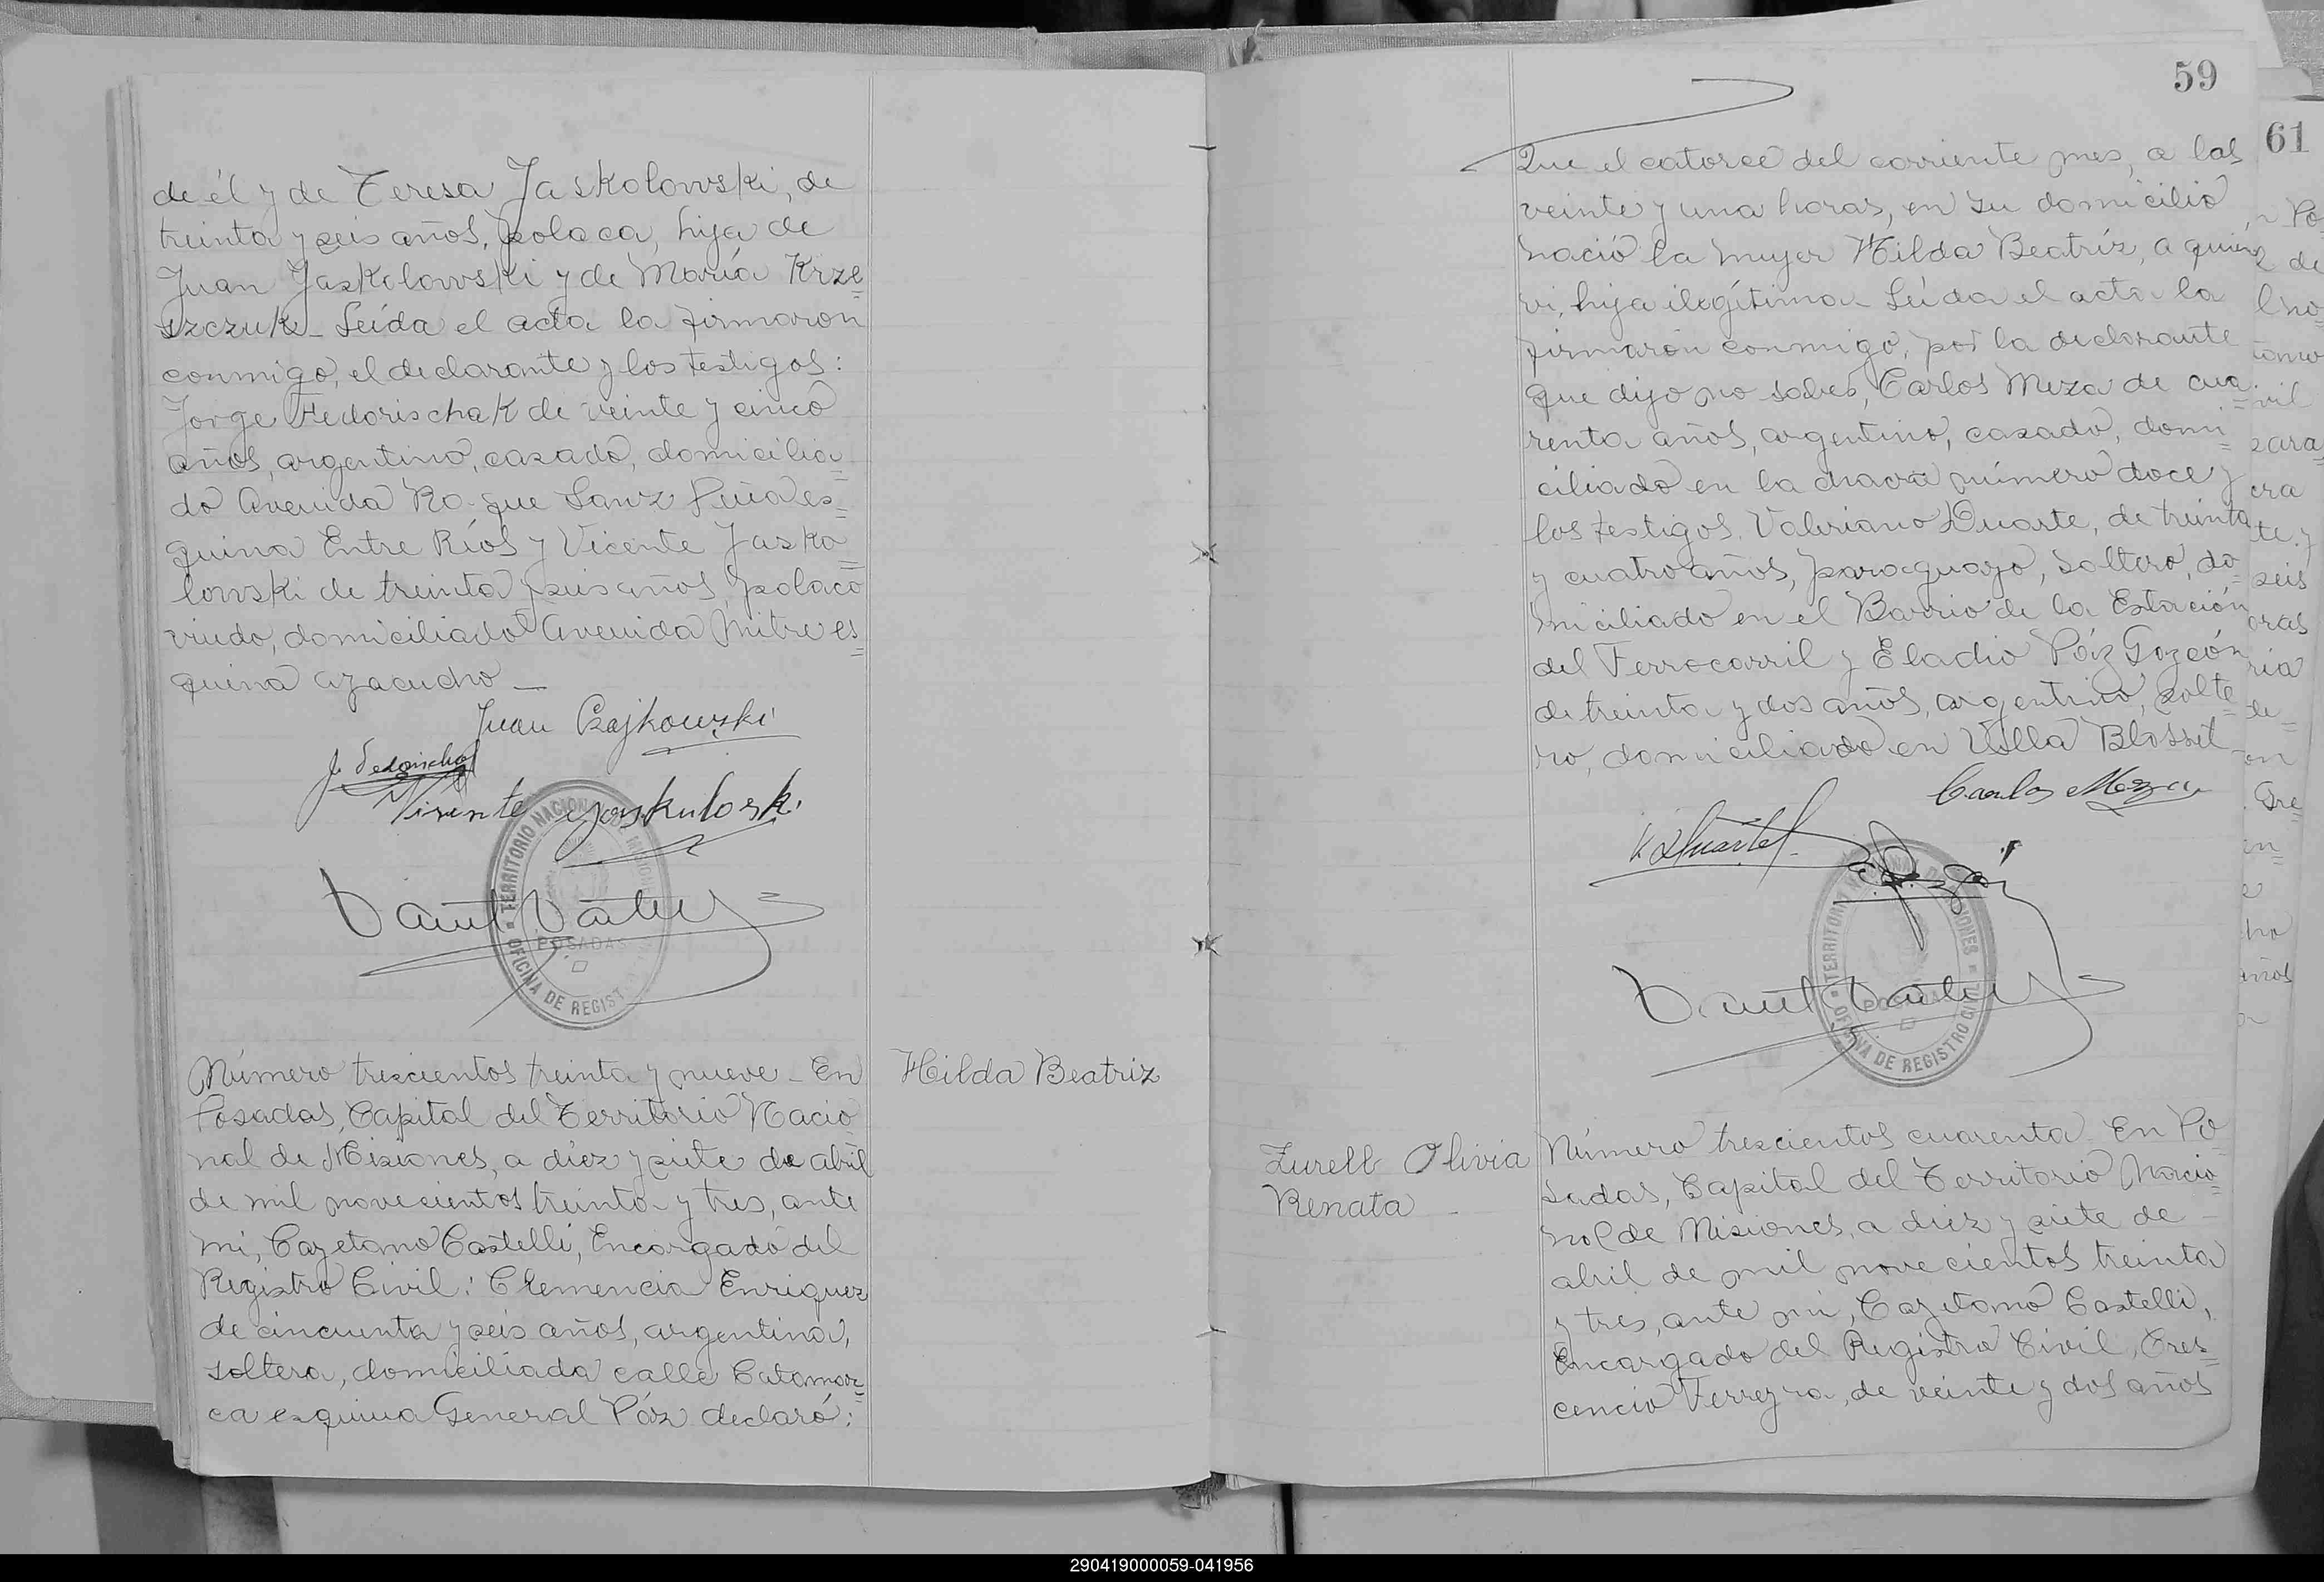 de él y de Teresa Jaskolowski, de
treinta y seis años, polaca, hija de
Juan Jaskolowski y de María Krze=
szczuk_ Leída el acta la firmaron
conmigo, el declarante y los testigos:
Jorge Fedorischak de veinte y cinco
años, argentino, casado, domicilia=
do Avenida Roque Sanz Peña es=
quina Entre Ríos y Vicente Jasko=
lowski de treinta y seis años, polaco
viudo, domiciliado Avenida Mitre es=
quina Ayacucho_
Juan Czajkowski
Vicente Jaskuloski
TERRITORIO NACIONAL DE MISIONES
POSADAS
OFICINA DE REGISTRO
Número trescientos treinta y nueve_ En
Posadas, Capital del Territorio Nacio
nal de Misiones, a diez y siete de abril
de mil novecientos treinta y tres, ante
mi, Cayetano Castelli, Encargado del
Registro Civil: Clemencia Enriquez
de cincuenta y seis años, argentina,
soltera, domiciliada calle Catamar=
ca esquina General Páz declaró:
Hilda Beatriz
59
Que el catorce del corriente mes, a las
veinte y una horas, en su domicilio
nació la mujer Hilda Beatríz, a quién
vi, hija ilegítima_ Leída el acta la
firmaron conmigo, por la declarante
que dijo no saber, Carlos Meza de cua=
renta años, argentino, casado, domi=
ciliado en la chacra número doce y
los testigos, Valeriano Duarte, de treinta
y cuatro años, paraguayo, soltero, do=
miciliado en el Barrio de la Estación
del Ferrocarril y Eladio Páiz
de treinta y dos años, argentino, solte=
ro, domiciliado en Villa Blosset_
Carlos Meza
V Duarte
TERRITORIO NACIONAL DE MISIONES
POSADAS
OFICINA DE REGISTRO CIVIL
Zurell Olivia
Renata_
Número trescientos cuarenta_ En Po=
sadas, Capital del Territorio Nacio=
nal de Misiones, a diez y siete de
abril de mil novecientos treinta
y tres, ante mi, Cayetano Castelli,
Encargado del Registro Civil, Cres=
cencio Ferreyra, de veinte y dos años
61
290419000059-041956